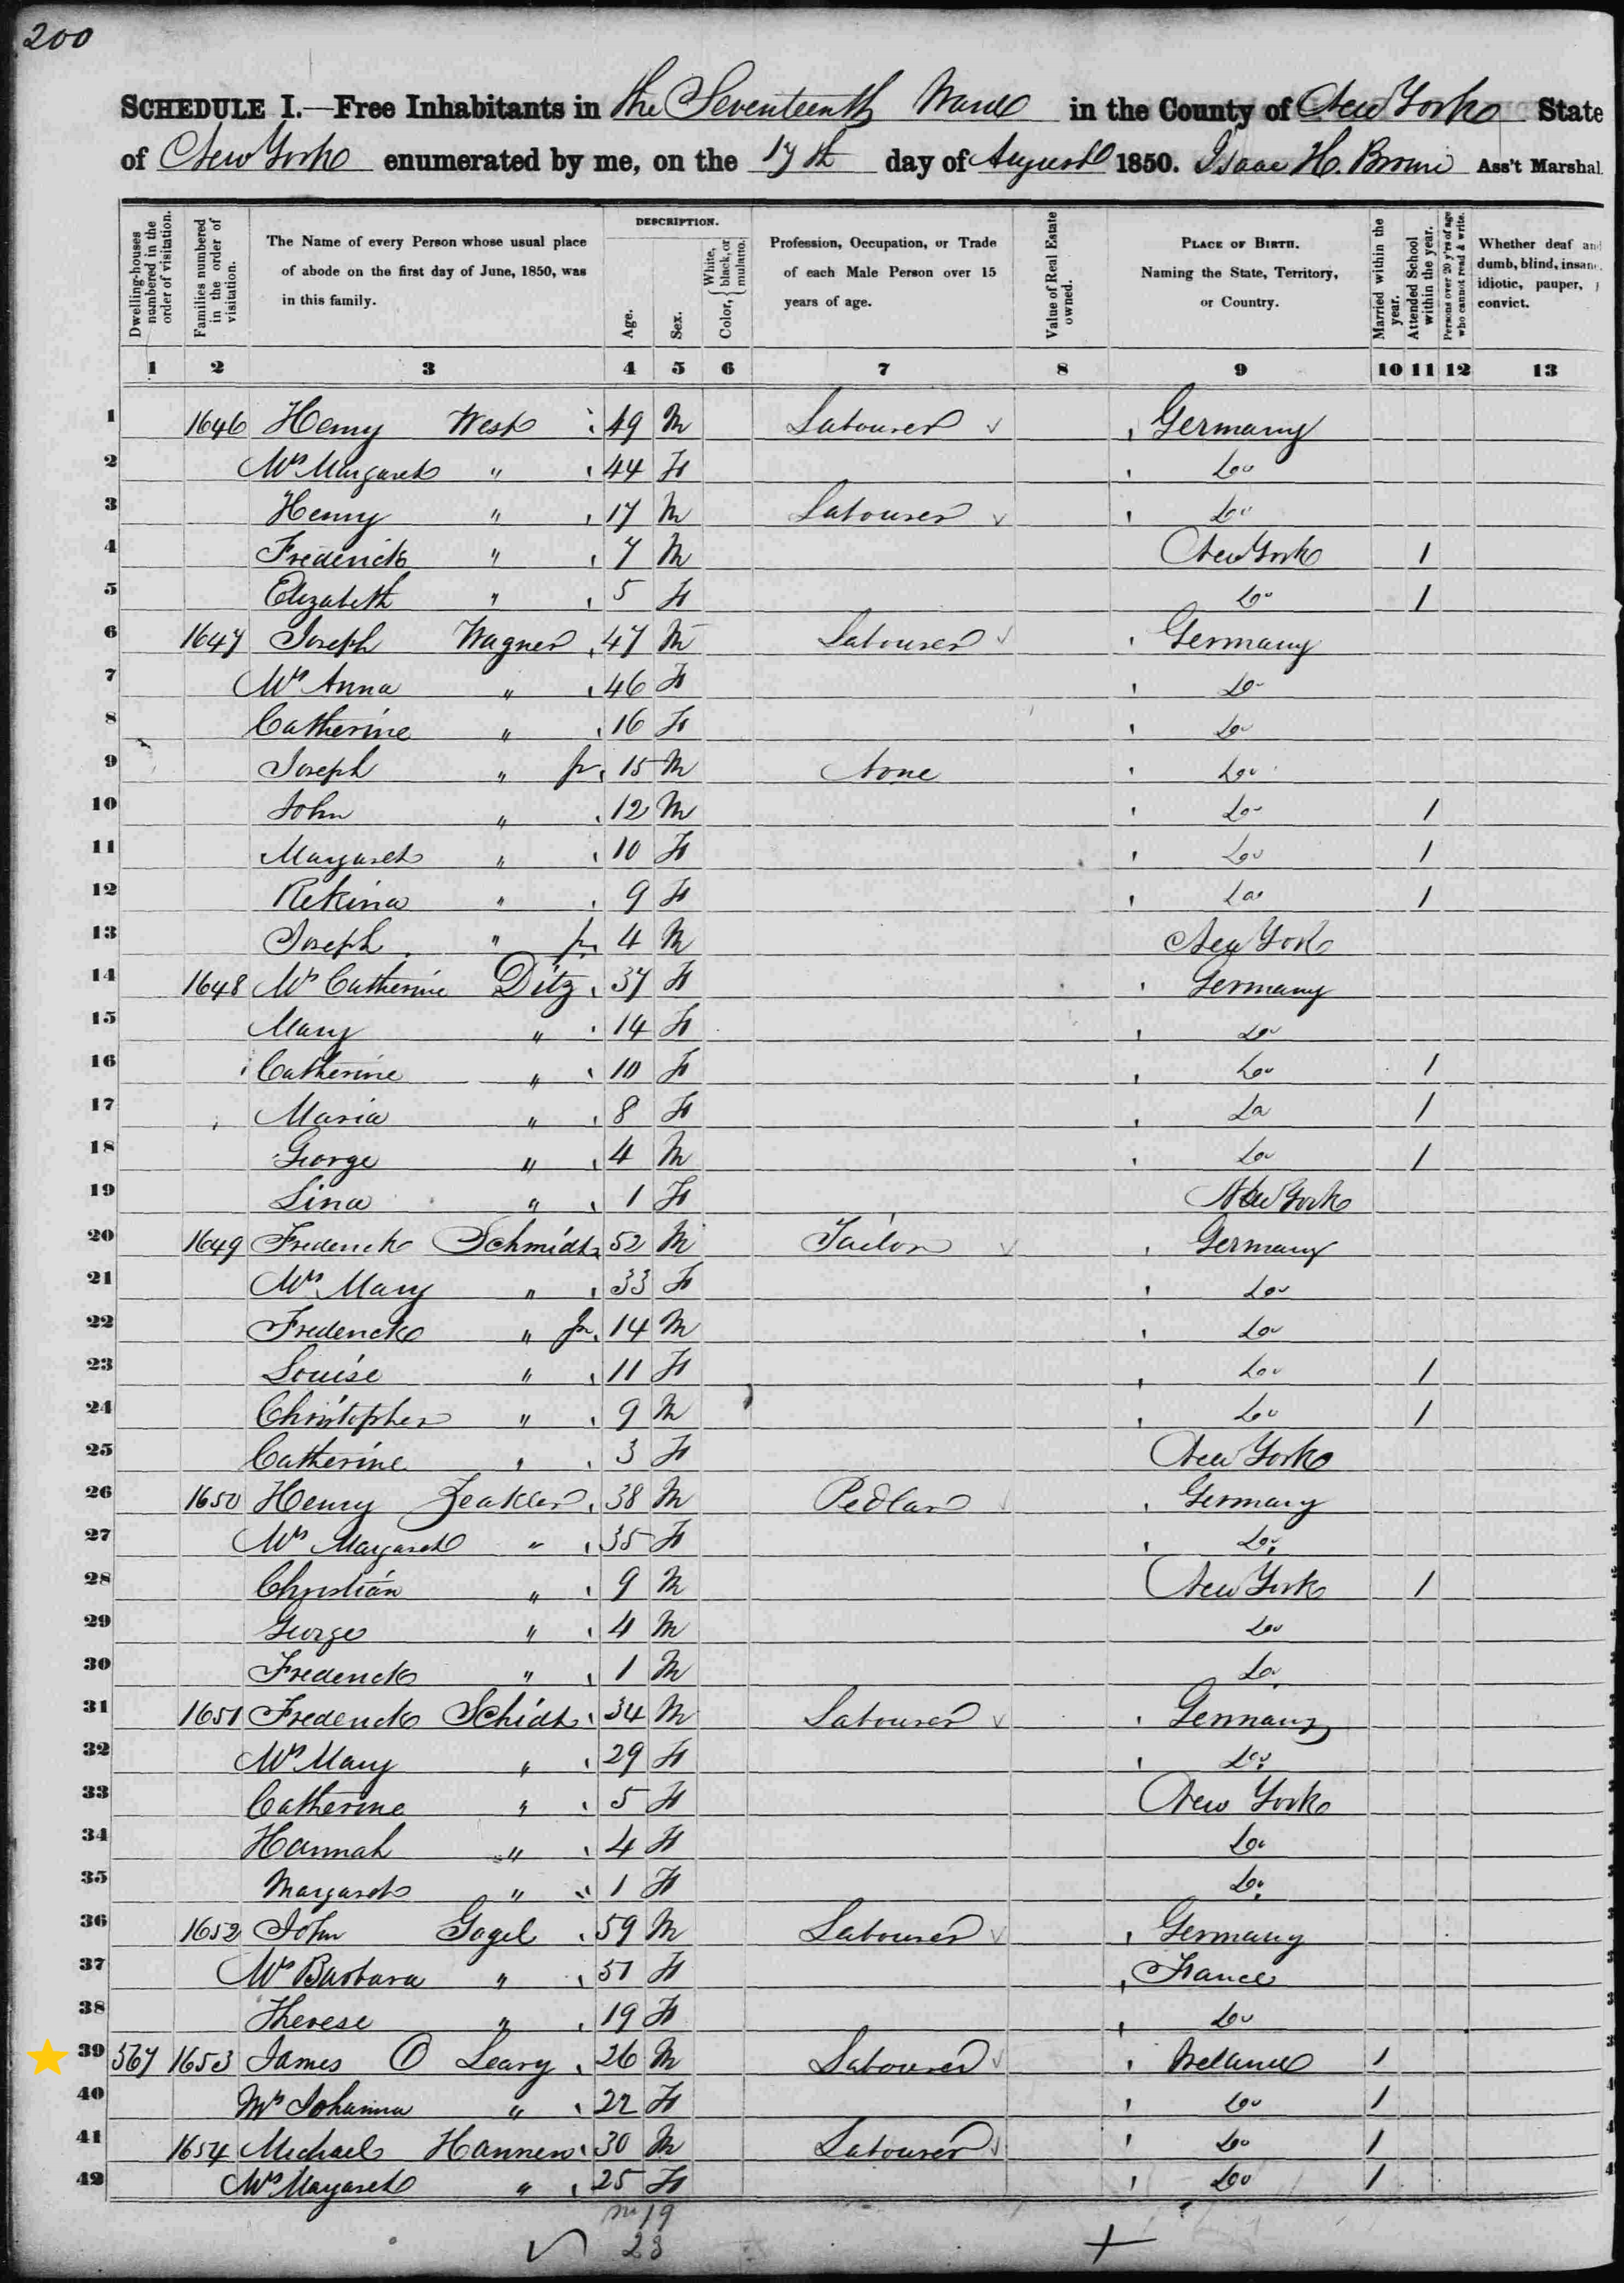 200
SCHEDULE I.—Free Inhabitants in the Seventeenth Ward in the County of New York State
of New York enumerated by me, on the 17th day of August 1850. Isaac H. Brown Ass't Marshal.
Dwelling-houses numbered in the order of visitation.
Families numbered in the order of visitation.
The Name of every Person whose usual place of abode on the first day of June, 1850, was in this family.
DESCRIPTION.
Age.
Sex.
Color, { White, black, or mulatto.
Profession, Occupation, or Trade of each Male Person over 15 years of age.
Value of Real Estate owned.
PLACE OF BIRTH. Naming the State, Territory, or Country.
Married within the year.
Attended School within the year.
Persons over 20 y'rs of age who cannot read & write.
Whether deaf and dumb, blind, insane, idiotic, pauper, convict.
1 2 3 4 5 6 7 8 9 10 11 12 13
1 1646 Henry West 49 M Labourer Germany
2 Mrs Margaret " 44 F Do
3 Henry " 17 M Labourer Do
4 Frederick " 7 M New York 1
5 Elizabeth " 5 F Do 1
6 1647 Joseph Wagner 47 M Labourer Germany
7 Mrs Anna " 46 F Do
8 Catherine " 16 F Do
9 Joseph " Jr 15 M None Do
10 John " 12 M Do 1
11 Margaret " 10 F Do 1
12 Rekina " 9 F Do 1
13 Joseph " Jr 4 M New York
14 1648 Mrs Catherine Ditz 37 F Germany
15 Mary " 14 F Do
16 Catherine " 10 F Do 1
17 Maria " 8 F Do 1
18 George " 4 M Do 1
19 Lina " 1 F New York
20 1649 Frederick Schmidt 52 M Tailor Germany
21 Mrs Mary " 33 F Do
22 Frederick " Jr 14 M Do
23 Louise " 11 F Do 1
24 Christopher " 9 M Do 1
25 Catherine " 3 F New York
26 1650 Henry Zeakler 38 M Pedlar Germany
27 Mrs Margaret " 35 F Do
28 Christian " 9 M New York 1
29 George " 4 M Do
30 Frederick " 1 M Do
31 1651 Frederick Schidt 34 M Labourer Germany
32 Mrs Mary " 29 F Do
33 Catherine " 5 F New York
34 Hannah " 4 F Do
35 Margaret " 1 F Do
36 1652 John Gogel 59 M Labourer Germany
37 Mrs Barbara " 51 F France
38 Therese " 19 F Do
39 567 1653 James O Leary 26 M Labourer Ireland 1
40 Mrs Johanna " 22 F Do 1
41 1654 Michael Hannen 30 M Labourer Do 1
42 Mrs Margaret " 25 F Do 1
m 19
23